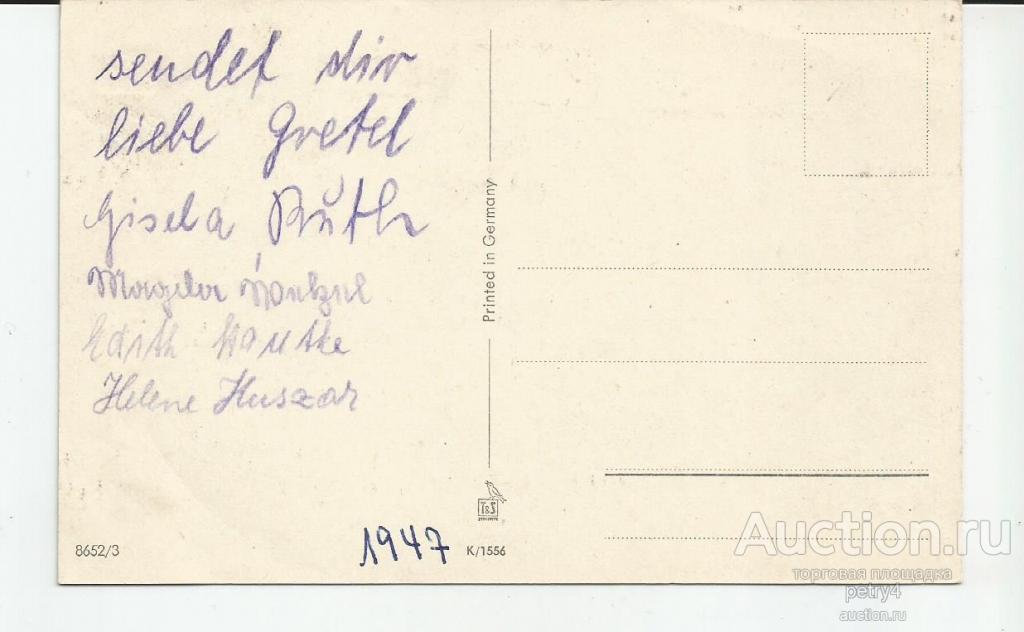 sendet dir
liebe Gretel
Gisela Ruth
Magda
Edith Hautke
Helene Huszar
1947
8652/3
K/1556
Printed in Germany
T&S
Auction.ru
торговая площадка
petry4
auction.ru